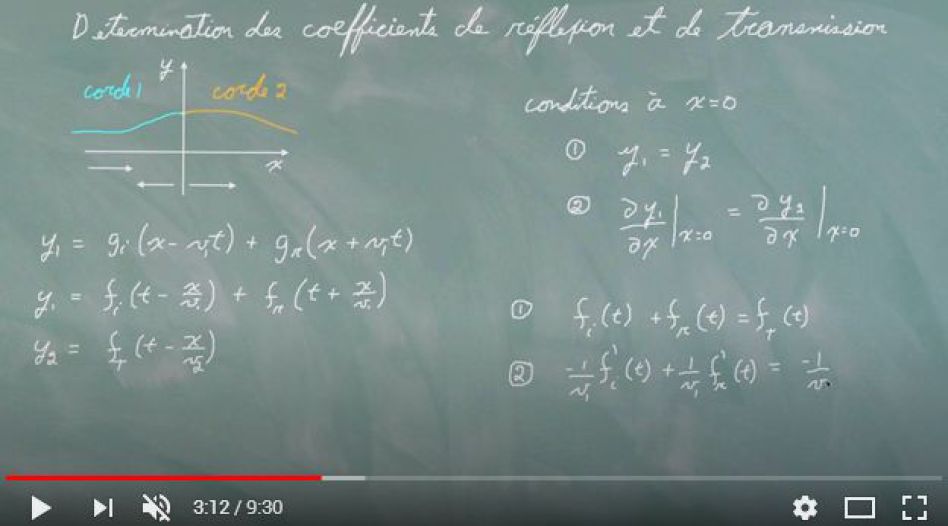 Détermination des coefficients de réflexion et de transmission
y
corde 1
corde 2
x
y₁ = gᵢ(x - v₁t) + gᵣ(x + v₁t)
y₁ = fᵢ(t - x/v₁) + fᵣ(t + x/v₁)
y₂ = f_T(t - x/v₂)
conditions à x=0
① y₁ = y₂
② ∂y₁/∂x |x=0 = ∂y₂/∂x |x=0
① fᵢ(t) + fᵣ(t) = f_T(t)
② -1/v₁ fᵢ'(t) + 1/v₁ fᵣ'(t) = -1/v
3:12 / 9:30